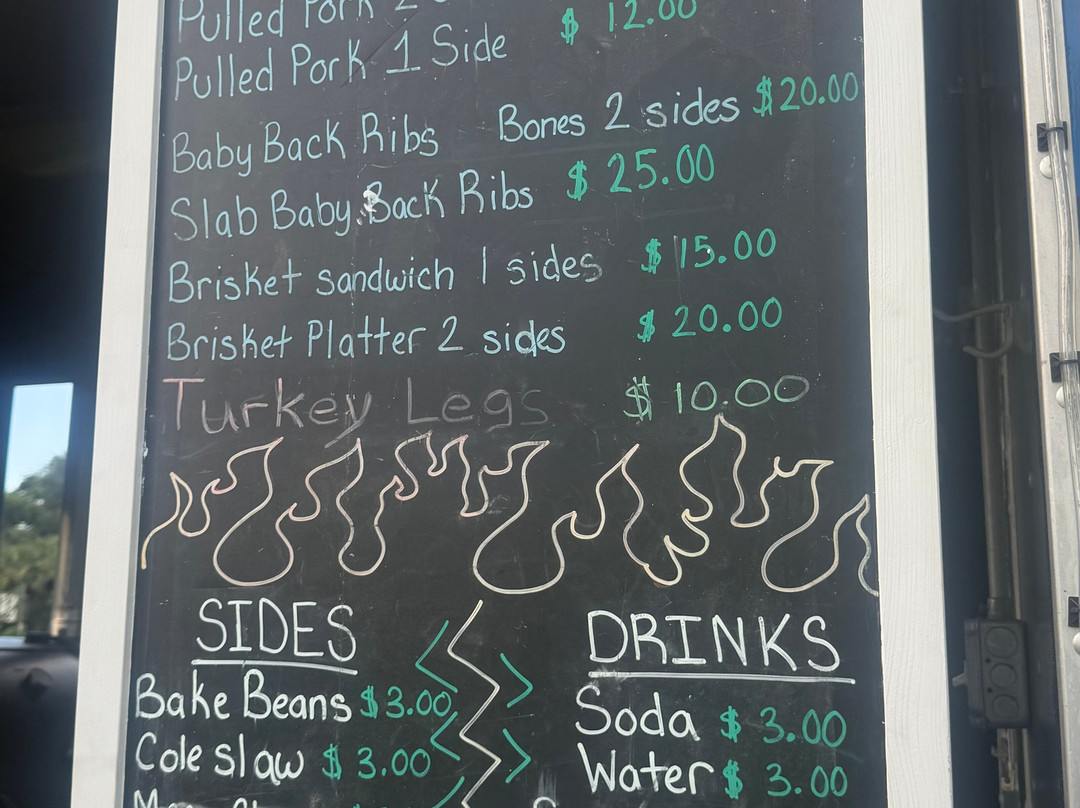 Pulled Pork 2
Pulled Pork 1 Side $ 12.00
Baby Back Ribs Bones 2 sides $20.00
Slab Baby Back Ribs $ 25.00
Brisket sandwich 1 sides $ 15.00
Brisket Platter 2 sides $ 20.00
Turkey Legs $ 10.00
SIDES
Bake Beans $3.00
Cole slaw $ 3.00
DRINKS
Soda $ 3.00
Water $ 3.00